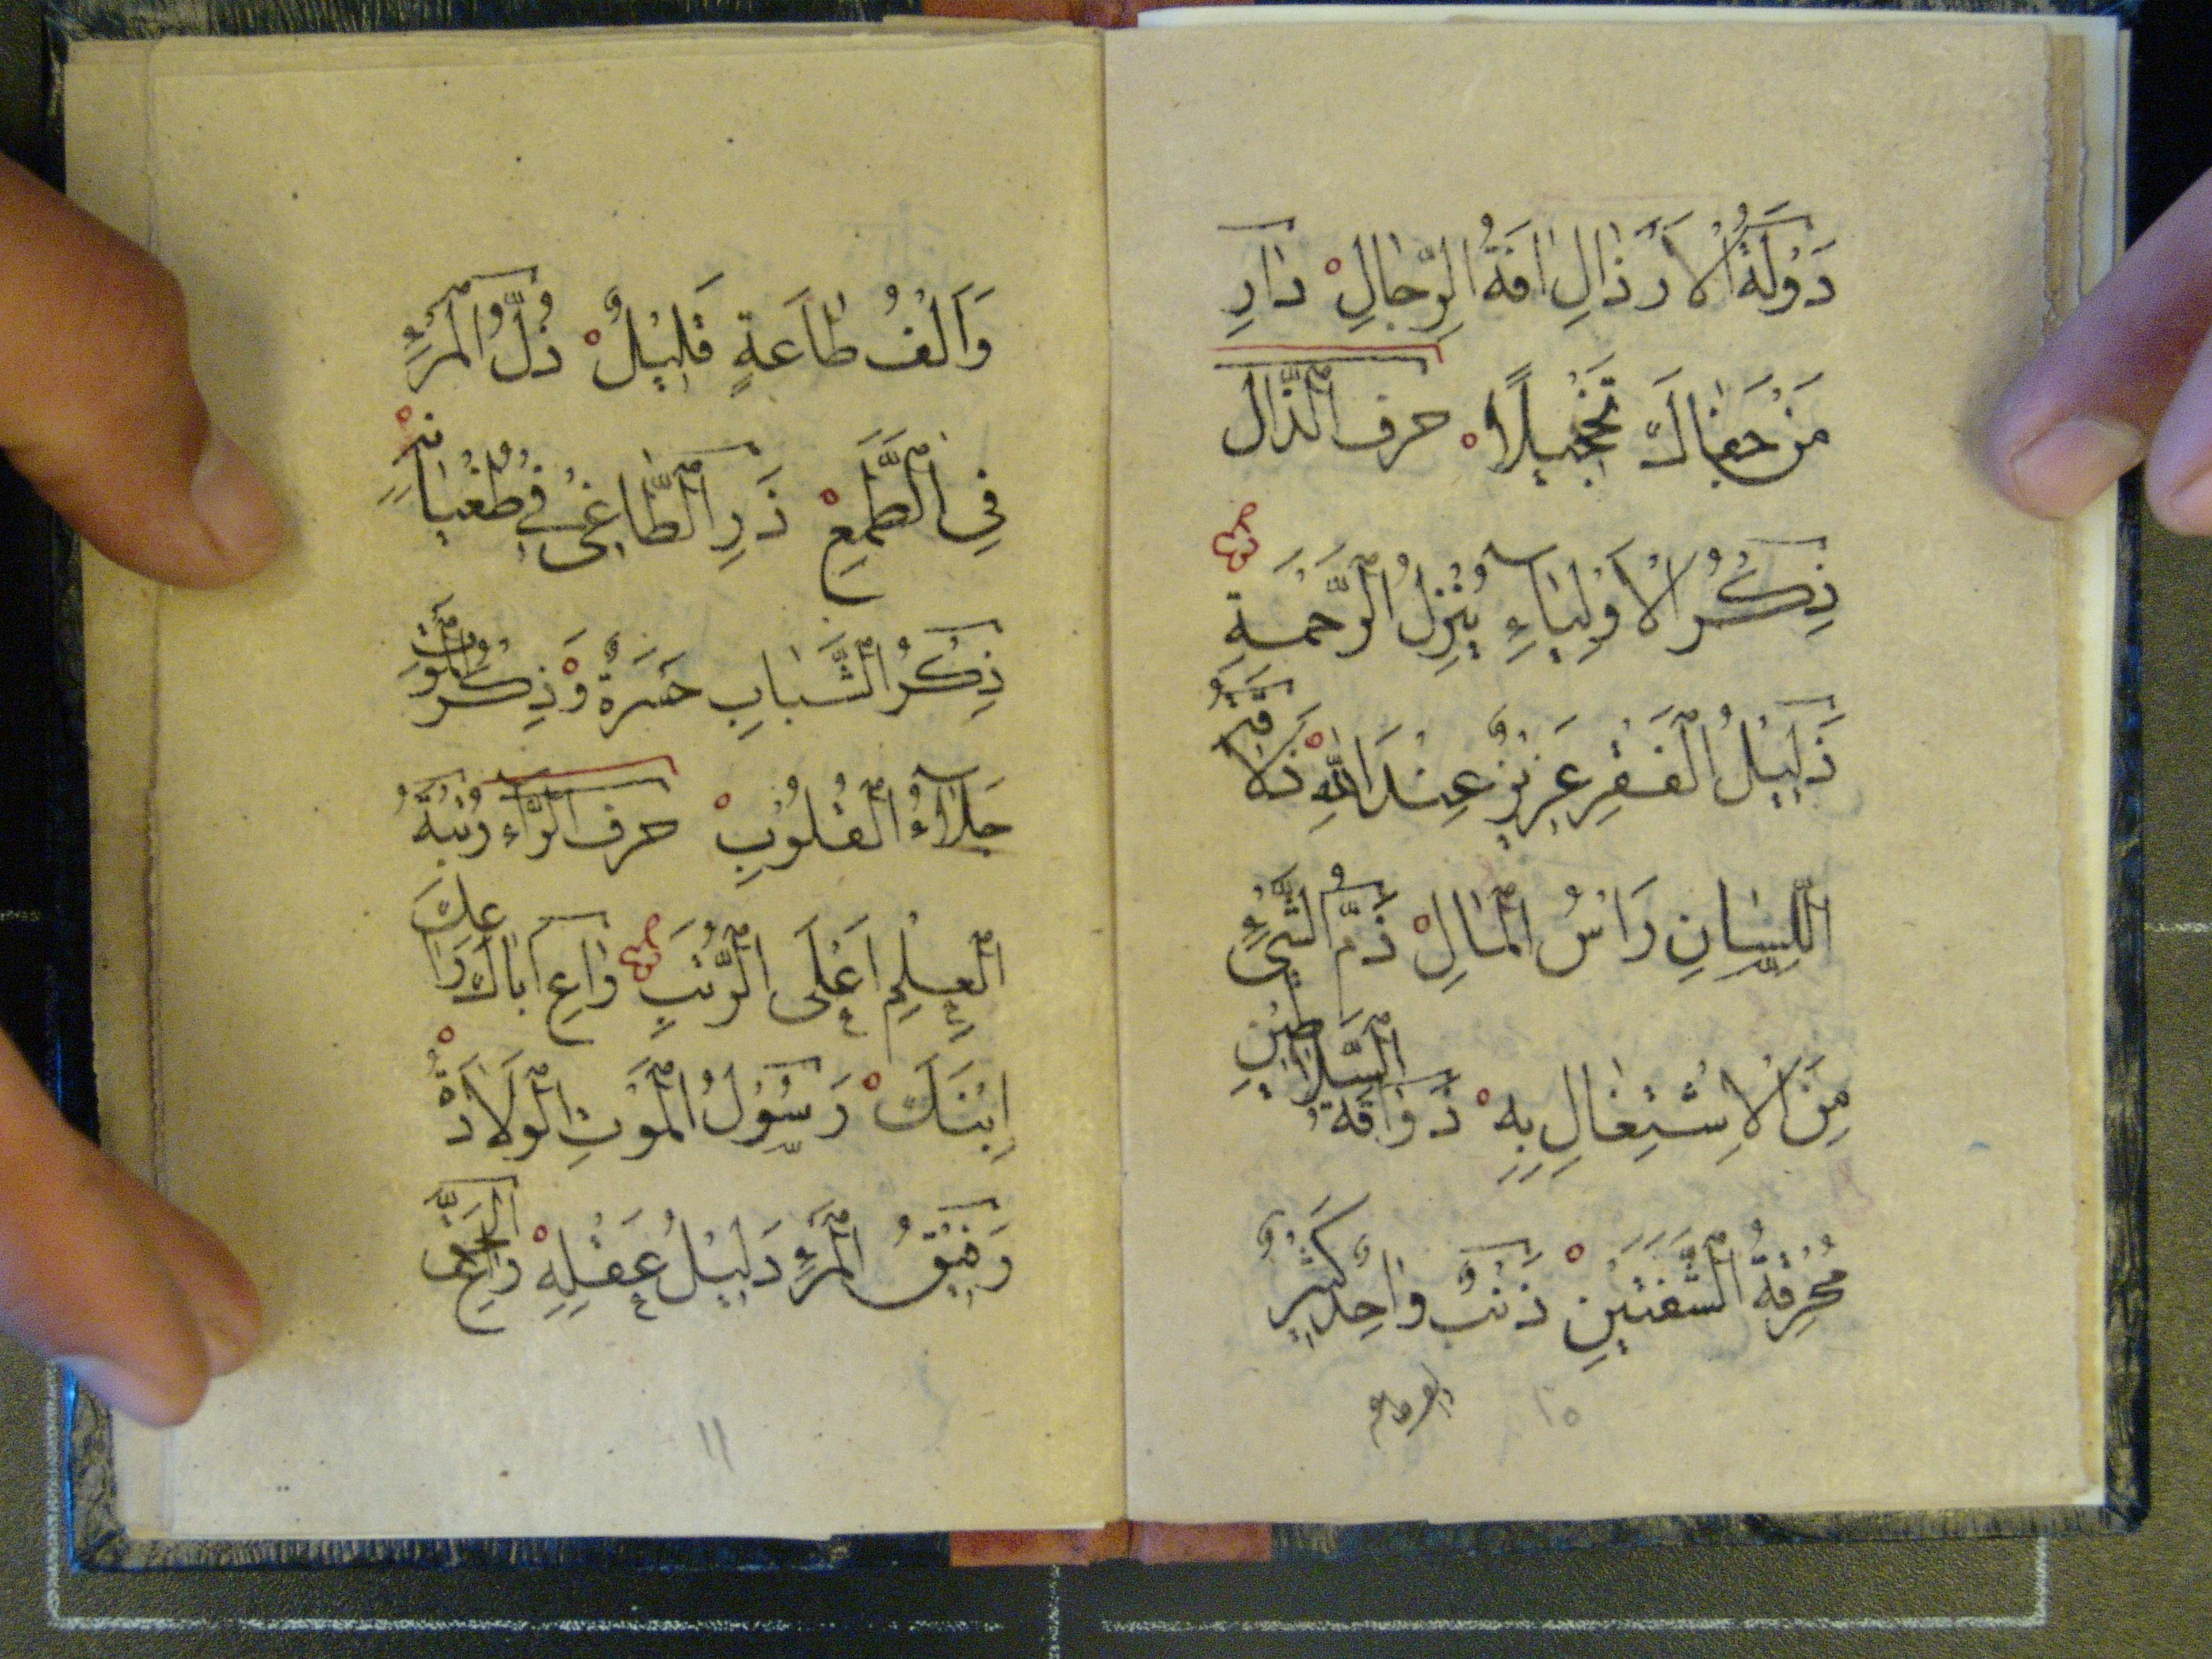 دَوْلَةُ الْاَرْذَالِ اٰفَةُ الرِّجَالِ دَارِ
مَنْ جَفَاكَ تَخْجِيلًا حرف الذّال
ذِكْرُ الْاَوْلِيَاءِ يُنْزِلُ الرَّحْمَةَ
ذَلِيْلُ الْفَقْرِ عَزِيْزٌ عِنْدَ اللهِ ذَلَاقَةُ
اللِّسَانِ رَاْسُ الْمَالِ ذَمُّ الشَّىْءِ
مِنَ الْاِشْتِغَالِ بِهِ ذَوَاقَةُ السَّلَاطِيْنِ
مُحْرِقَةُ الشَّفَتَيْنِ ذَنْبٌ وَاحِدٌ كَثِيْرٌ
١٥
وَاَلْفُ طَاعَةٍ قَلِيْلٌ ذُلُّ الْمَرْءِ
فِى الطَّمَعِ ذَرِ الطَّاغِىْ فِىْ طُغْيَانِهِ
ذِكْرُ الشَّبَابِ حَسْرَةٌ وَذِكْرُ الْمَوْتِ
جَلَاءُ الْقُلُوْبِ حرف الرّاء رُتْبَةُ
الْعِلْمِ اَعْلَى الرُّتَبِ رَاعِ اَبَاكَ رَاعِكَ
اِبْنَكَ رَسُوْلُ الْمَوْتِ الْوَلَادَةُ
رَفِيْقُ الْمَرْءِ دَلِيْلُ عَقْلِهِ رَاعِ الْحَقَّ
١١